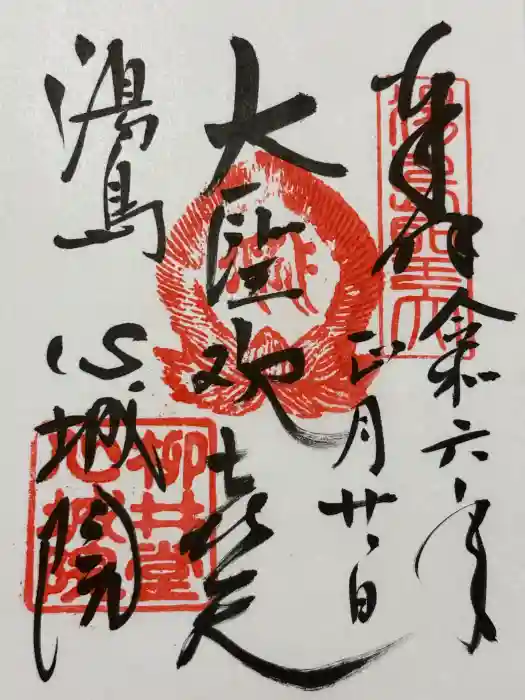 奉拝
令和六年
正月廿日
湯島聖天
大聖歓喜天
湯島
心城院
柳井堂
心城院